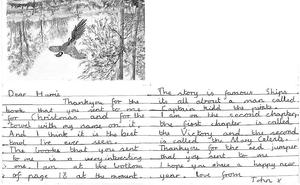 Dear Harris
Thankyou for the
book that you sent to me
for Christmas and for the
towel with my name on it.
And I think it is the best
towl I've ever seen.
The book that you sent
to me is a very interesting
one, I am at the bottom
of page 18 at the moment.
The story is famous Ships
its all about a man called
Captain Kidd the pirate.
I am on the second chapter,
the first chapter is called
the Victory and the second
is called "the Mary Celeste".
Thankyou for the red jumper
that you sent to me
I hope you have a happy new
year. love from
John x